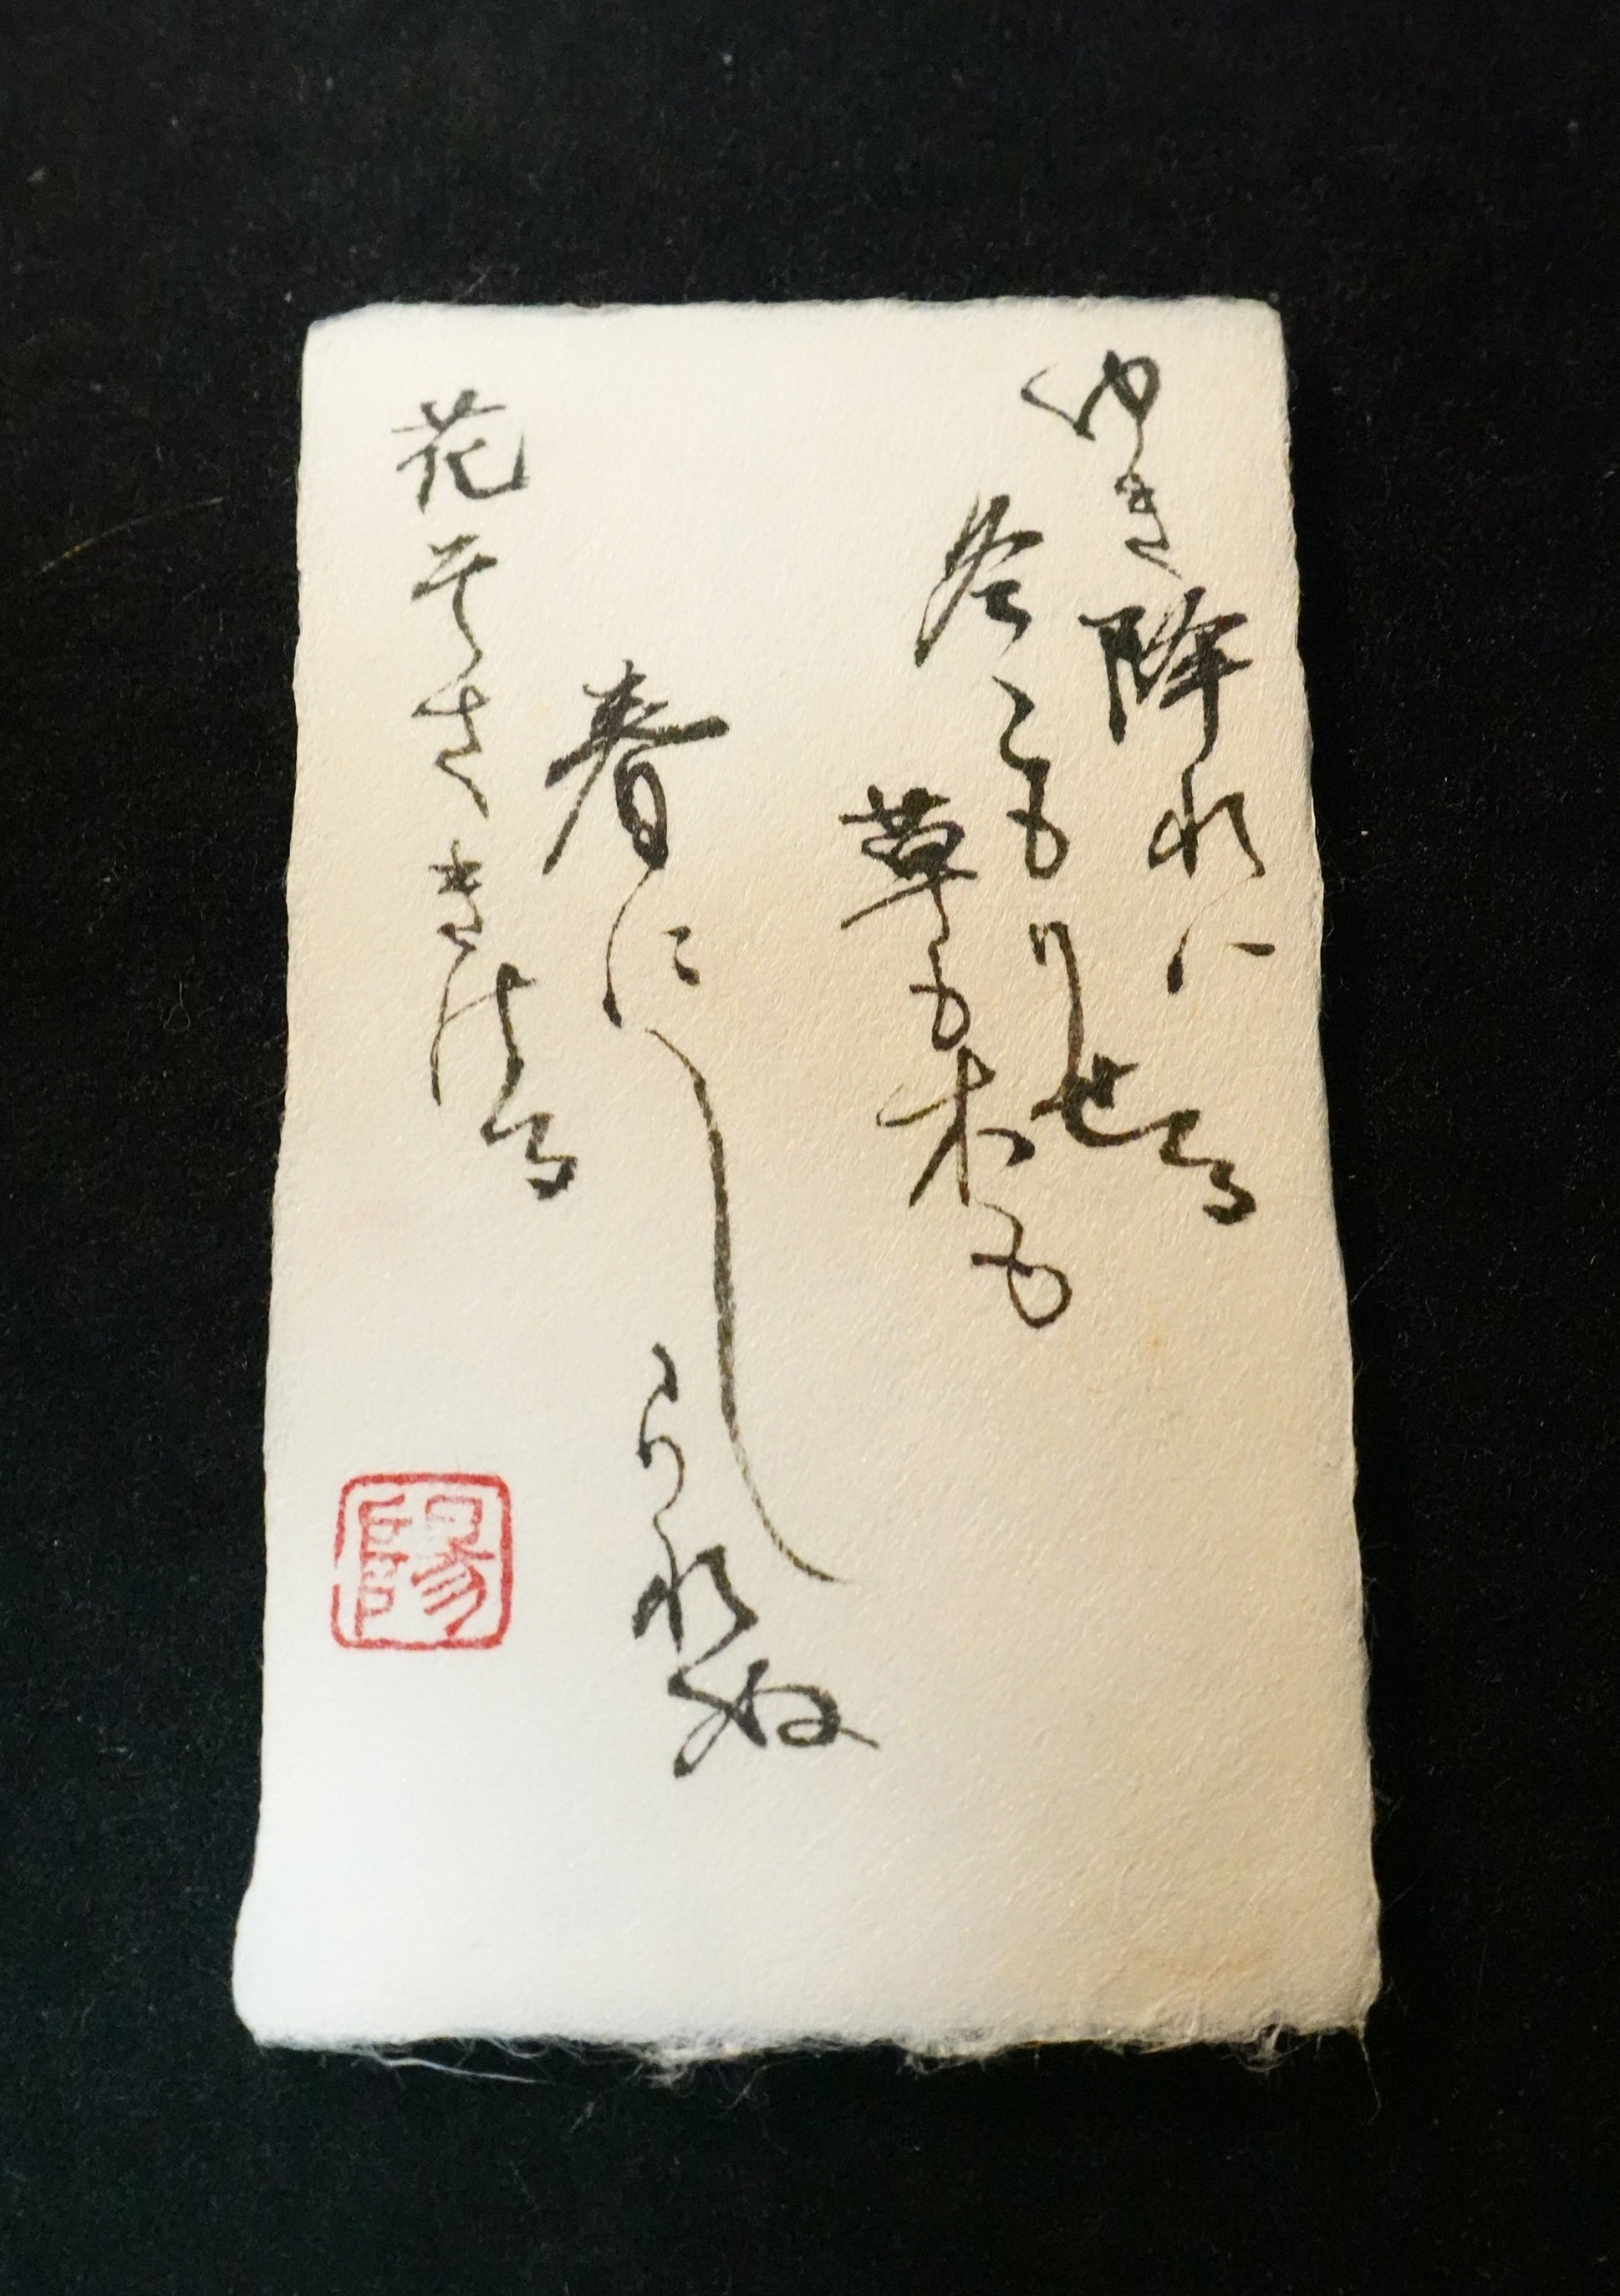 ゆき降れは
冬こもりせる
草も木も
春にしられぬ
花そさきける
陽